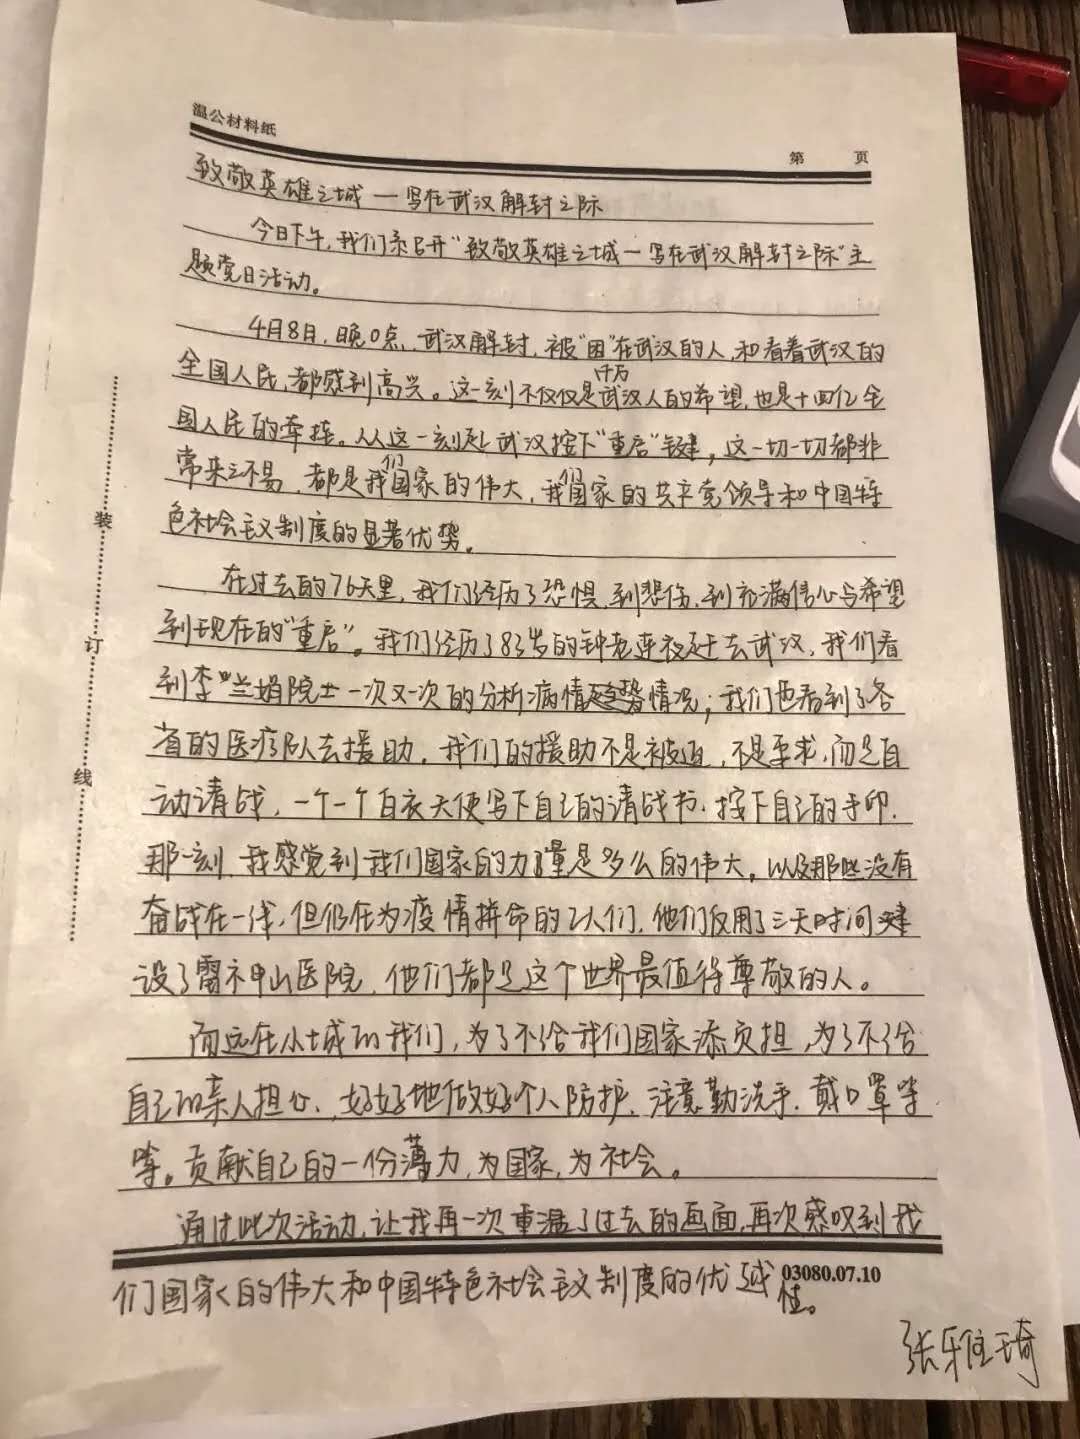 温公材料纸
第 页
致敬英雄之城一写在武汉解封之际
今日下午，我们系召开“致敬英雄之城一写在武汉解封之际”主
题党日活动。
4月8日，晚0点，武汉解封，被“困”在武汉的人，和看着武汉的
全国人民，都感到高兴。这一刻不仅仅是千万武汉人的希望，也是十四亿全
国人民的牵挂。从这一刻起，武汉按下“重启”键，这一切一切都非
常来之不易，都是我们国家的伟大，我们国家的共产党领导和中国特
色社会主义制度的显著优势。
在过去的76天里，我们经历了恐惧，到悲伤，到充满信心与希望
到现在的“重启”。我们经历了83岁的钟老连夜赶去武汉，我们看
到李兰娟院士一次又一次的分析病情趋势情况；我们也看到了各
省的医疗队去援助，我们的援助不是被迫，不是要求，而是自
动请战，一个一个白衣天使写下自己的请战书，按下自己的手印，
那一刻，我感觉到我们国家的力量是多么的伟大。以及那些没有
奋战在一线，但仍在为疫情拼命的工人们，他们仅用了三天时间建
设了雷神山医院，他们都是这个世界最值得尊敬的人。
而远在小城的我们，为了不给我们国家添负担，为了不给
自己的亲人担心，好好地做好个人防护，注意勤洗手，戴口罩等
等。贡献自己的一份薄力，为国家，为社会。
通过此次活动，让我再一次重温了过去的画面，再次感叹到我
们国家的伟大和中国特色社会主义制度的优越性。
03080.07.10
张雅琦
装
订
线